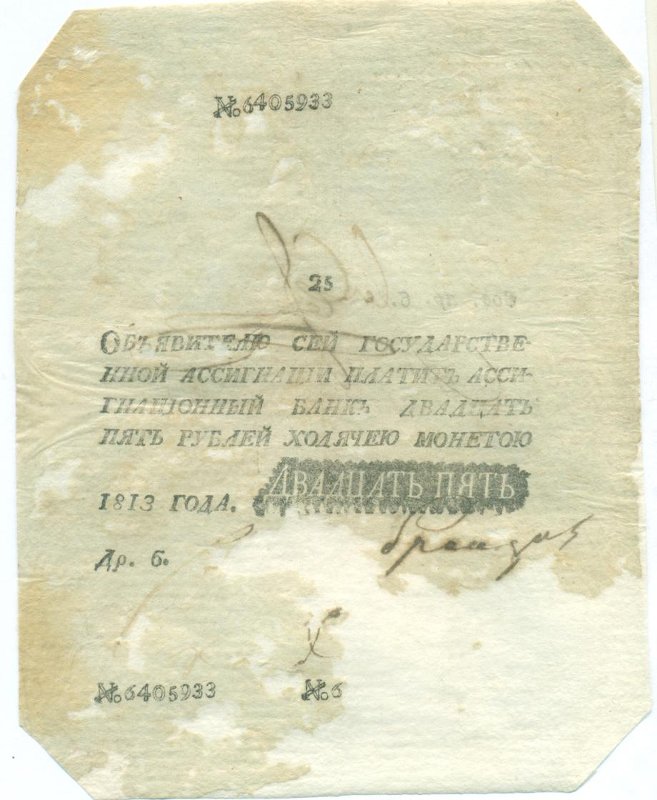 № 6405933
25
Объявителю сей государстве-
нной ассигнации платитъ асси-
гнацiонный банкъ двадцать
пять рублей ходячею монетою
1813 года. ДВАДЦАТЬ ПЯТЬ
Др. б.
№ 6405933 № 6